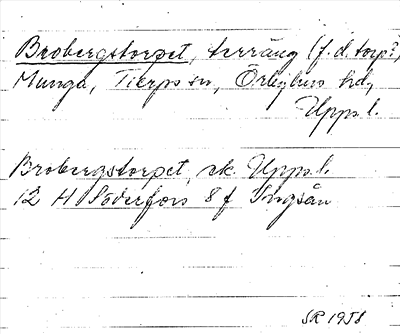 Brobergstorpet, terräng (f.d. torp?)
Munga, Tierps sn, Örbyhus hd,
Upps. l.
Brobergstorpet, ek. Upps. l.
12 H Söderfors 8 f Tvigsån
SR 1958